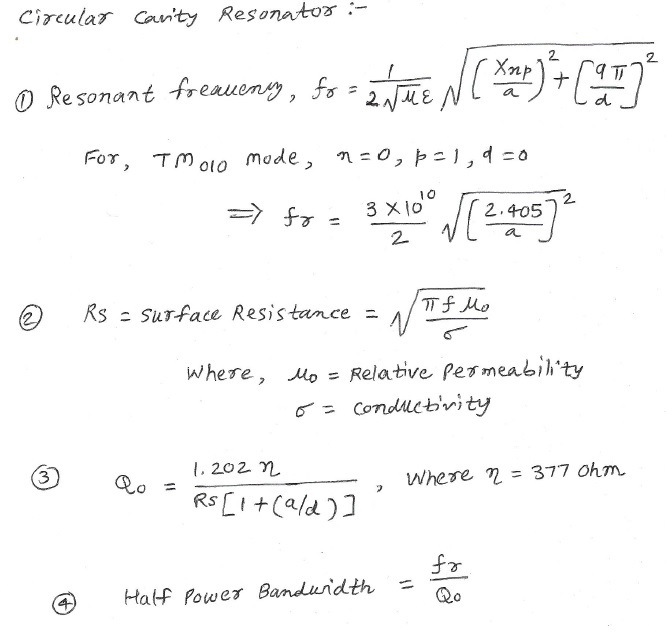 Circular Cavity Resonator :-
① Resonant freauency, fr = 1/(2√με) √[(Xnp/a)² + [qπ/d]²]
For, TM010 mode, n=0, p=1, q=0
⇒ fr = (3×10¹⁰/2) √[2.405/a]²
② Rs = surface Resistance = √(πfμo/σ)
Where, μo = Relative Permeability
σ = conductivity
③ Qo = 1.202 η / Rs[1+(a/d)], Where η = 377 ohm
④ Half Power Bandwidth = fr/Qo